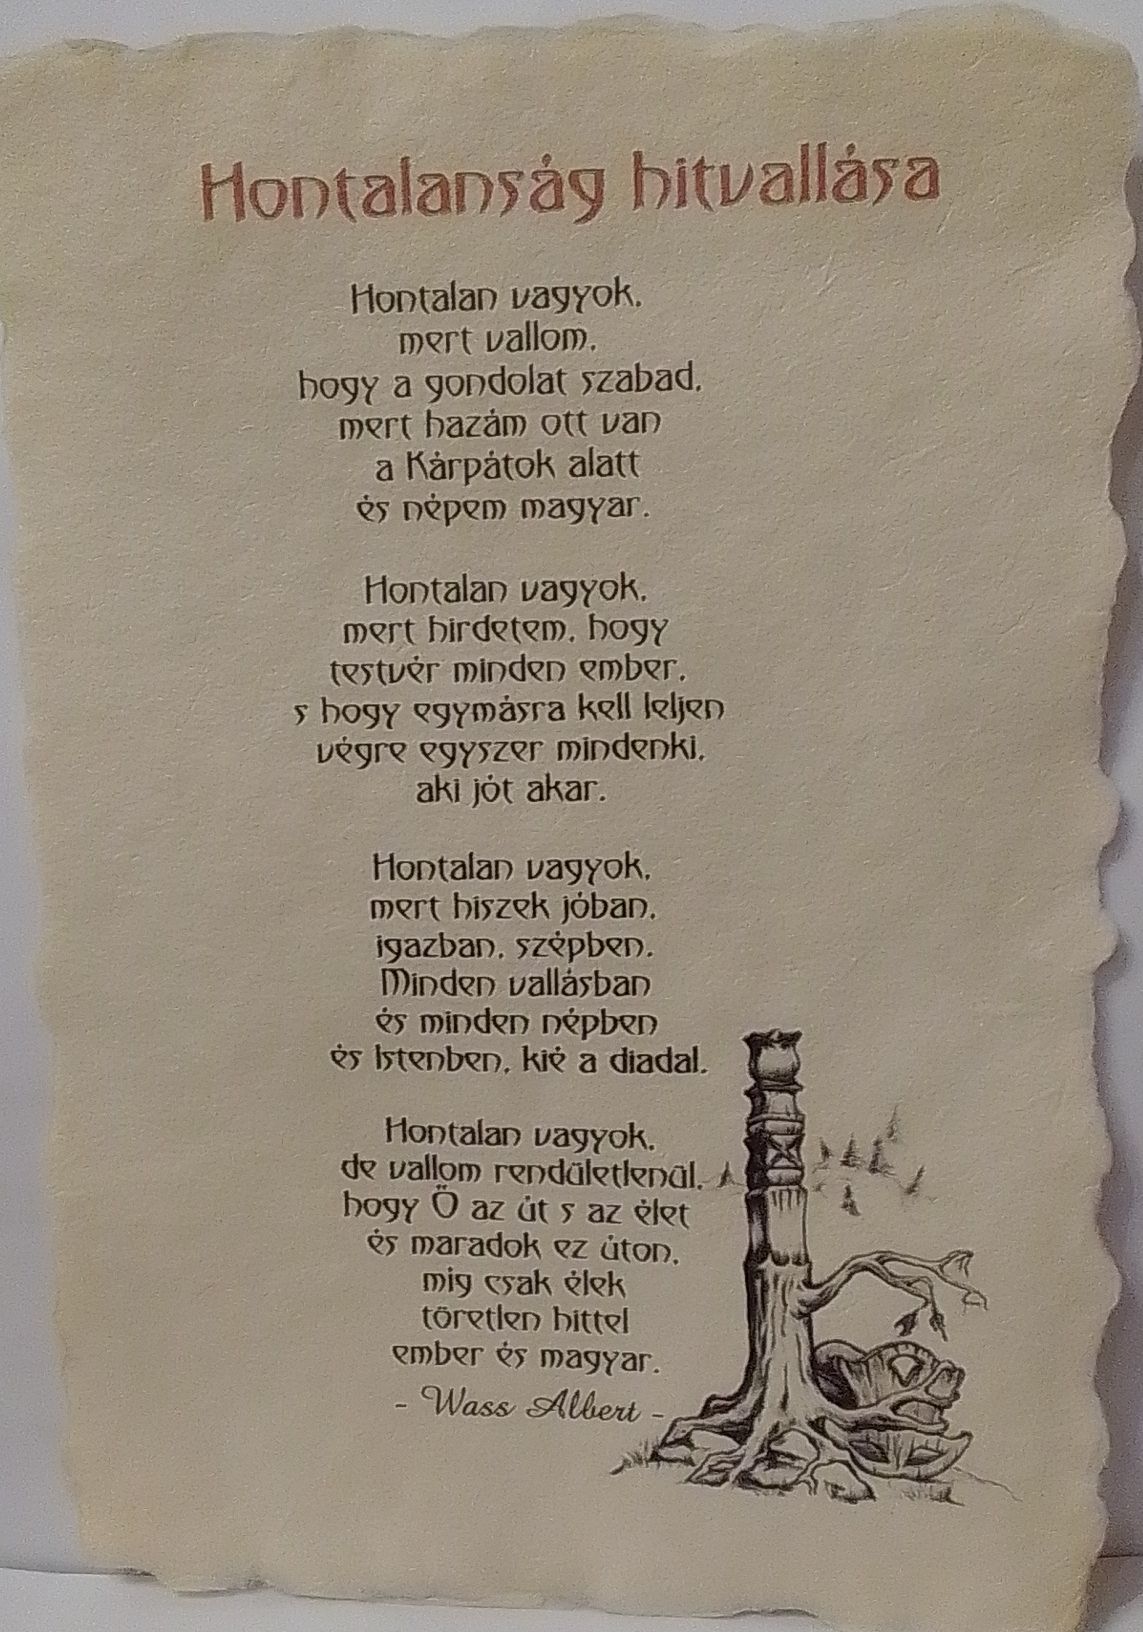 Hontalanság hitvallása
Hontalan vagyok,
mert vallom,
hogy a gondolat szabad,
mert hazám ott van
a Kárpátok alatt
és népem magyar.
Hontalan vagyok,
mert hirdetem, hogy
testvér minden ember,
s hogy egymásra kell leljen
végre egyszer mindenki,
aki jót akar.
Hontalan vagyok,
mert hiszek jóban,
igazban, szépben.
Minden vallásban
és minden népben
és Istenben, kié a diadal.
Hontalan vagyok,
de vallom rendületlenül,
hogy Ő az út s az élet
és maradok ez úton,
míg csak élek
töretlen hittel
ember és magyar.
- Wass Albert -